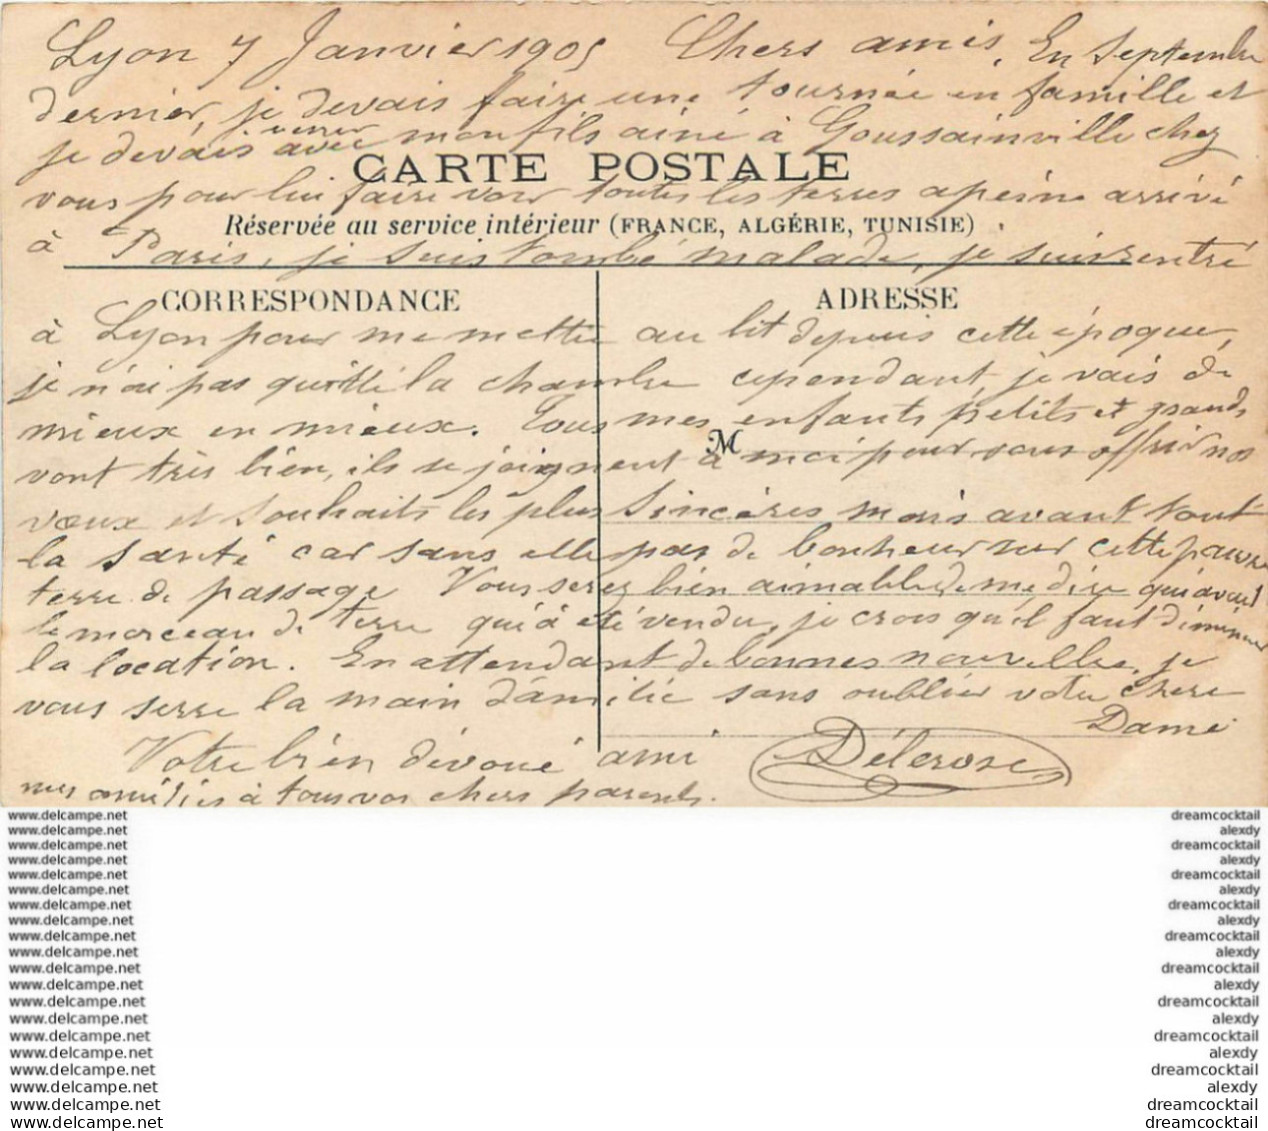 Lyon 7 Janvier 1905 Chers amis, En Septembre
dernier, je devais faire une tournée en famille et
je devais venir avec mon fils ainé à Goussainville chez
CARTE POSTALE
vous pour lui faire voir toutes les terres apeine arrivé
Réservée au service intérieur (FRANCE, ALGÉRIE, TUNISIE)
à Paris, je suis tombé malade, je suis rentré
CORRESPONDANCE ADRESSE
à Lyon pour me mettre au lit depuis cette époque,
je n'ai pas quitté la chambre cependant, je vais de
mieux en mieux. Tous mes enfants petits et grands
M
vont très bien, ils se joignent à moi pour vous offrir nos
vœux et souhaits les plus sincères mais avant tout
la santé car sans elle pas de bonheur sur cette pauvre
terre de passage Vous serez bien aimable de me dire qui avait
le morceau de terre qui a été vendu, je crois qu'il faut diminuer
la location. En attendant de bonnes nouvelles, je
vous serre la main d'amitié sans oublier votre chere
Dame
Votre bien dévoué ami Délerose
mes amitiés à tous vos chers parents.
www.delcampe.net dreamcocktail
www.delcampe.net alexdy
www.delcampe.net dreamcocktail
www.delcampe.net alexdy
www.delcampe.net dreamcocktail
www.delcampe.net alexdy
www.delcampe.net dreamcocktail
www.delcampe.net alexdy
www.delcampe.net dreamcocktail
www.delcampe.net alexdy
www.delcampe.net dreamcocktail
www.delcampe.net alexdy
www.delcampe.net dreamcocktail
www.delcampe.net alexdy
www.delcampe.net dreamcocktail
www.delcampe.net alexdy
www.delcampe.net dreamcocktail
www.delcampe.net alexdy
www.delcampe.net dreamcocktail
www.delcampe.net dreamcocktail